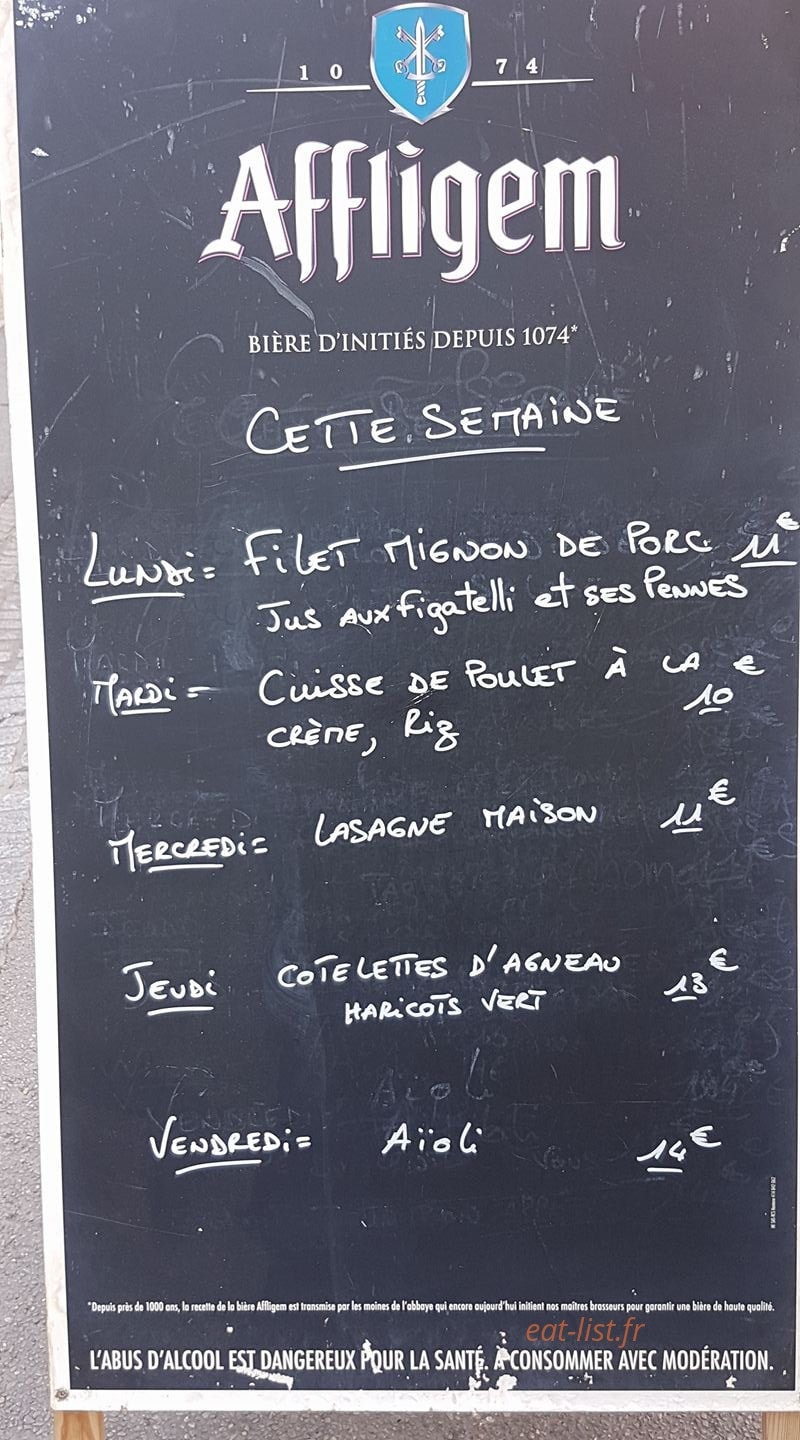 10 74
Affligem
BIÈRE D'INITIÉS DEPUIS 1074*
CETTE SEMAINE
LUNDi= FiLET MiGNON DE PORC 11€
JUS AUX figatelli et SES PENNES
MARDi= CUiSSE DE POULET À LA €
CRÈME, Riz 10
MERCREDi= LASAGNE MAiSON 11€
JEUDi COTELETTES D'AGNEAU 13€
HARiCOTS VERT
VENDREDi= Aïoli 14€
*Depuis près de 1000 ans, la recette de la bière Affligem est transmise par les moines de l'abbaye qui encore aujourd'hui initient nos maîtres brasseurs pour garantir une bière de haute qualité.
eat-list.fr
L'ABUS D'ALCOOL EST DANGEREUX POUR LA SANTÉ. A CONSOMMER AVEC MODÉRATION.